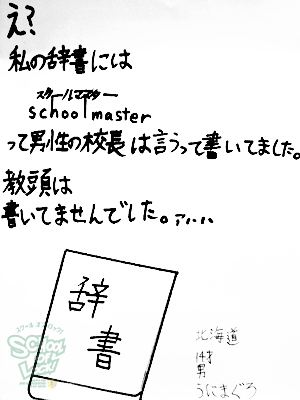 え?
私の辞書には
スクールマスター
school master
って男性の校長は言うって書いてました。
教頭は
書いてませんでした。アハハ
辞書
スクール オブ ロック!
SCHOOL OF LOCK!
北海道
14才
男
うにまぐろ